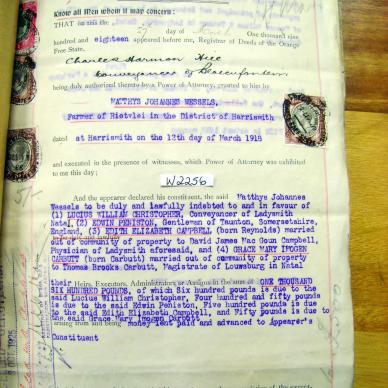 Know all Men whom it may concern:
THAT on this the 27 day of March One thousand nine
hundred and eighteen appeared before me, Registrar of Deeds of the Orange
Free State.
Charles Harmon Hill
Conveyancer of Bloemfontein
being duly authorized thereto by a Power of Attorney, granted to him by
MATTHYS JOHANNES WESSELS,
Farmer of Rietvlei in the District of Harrismith
dated at Harrismith on the 12th day of March 1918
and executed in the presence of witnesses, which Power of Attorney was exhibited
to me this day;
W2256
And the appearer declared his constituent, the said Matthys Johannes
Wessels to be duly and lawfully indebted to and in favour of
(1) LUCIUS WILLIAM CHRISTOPHER, Conveyancer of Ladysmith
Natal, (2) EDWIN PENISTON, Gentleman of Taunton, Somersetshire,
England, (3) EDITH ELIZABETH CAMPBELL (born Reynolds) married
out of community of property to David James Mac Goun Campbell,
Physician of Ladysmith aforesaid, and (4) GRACE MARY IMOGEN
CARBUTT (born Carbutt) married out of community of property
to Thomas Brooks Carbutt, Magistrate of Louwsburg in Natal
their Heirs, Executors, Administrators or Assigns in the sum of ONE THOUSAND
SIX HUNDRED POUNDS, of which Six hundred pounds is due to the
said Lucius William Christopher, Four hundred and fifty pounds
is due to the said Edwin Peniston, Five hundred pounds is due
to the said Edith Elizabeth Campbell, and Fifty pounds is due to
the said Grace Mary Imogen Carbutt
arising from and being money lent paid and advanced to Appearer's
Constituent